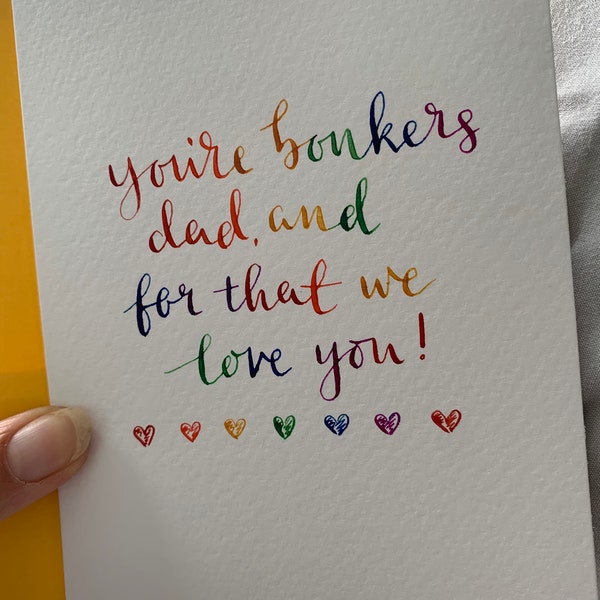 you're bonkers
dad, and
for that we
love you!